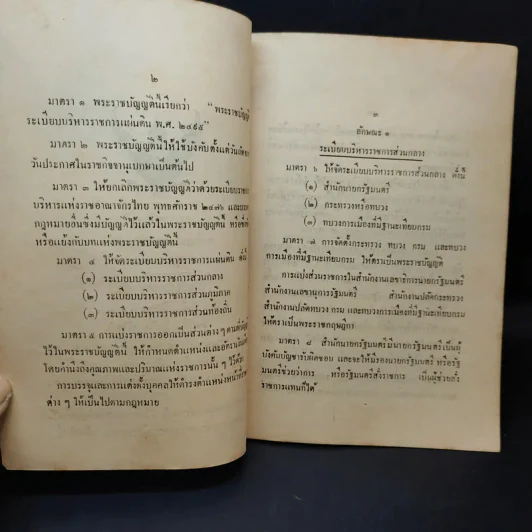 ๒
มาตรา ๑ พระราชบัญญัตินี้เรียกว่า “พระราชบัญญัติ
ระเบียบบริหารราชการแผ่นดิน พ.ศ. ๒๔๙๕”
มาตรา ๒ พระราชบัญญัตินี้ให้ใช้บังคับตั้งแต่วันถัดจาก
วันประกาศในราชกิจจานุเบกษาเป็นต้นไป
มาตรา ๓ ให้ยกเลิกพระราชบัญญัติว่าด้วยระเบียบราชการ
บริหารแห่งราชอาณาจักรไทย พุทธศักราช ๒๔๗๖ และบรรดา
กฎหมายอื่นซึ่งมีบัญญัติไว้แล้วในพระราชบัญญัตินี้ หรือซึ่งขัด
หรือแย้งกับบทแห่งพระราชบัญญัตินี้
มาตรา ๔ ให้จัดระเบียบบริหารราชการแผ่นดิน ดังนี้
(๑) ระเบียบบริหารราชการส่วนกลาง
(๒) ระเบียบบริหารราชการส่วนภูมิภาค
(๓) ระเบียบบริหารราชการส่วนท้องถิ่น
มาตรา ๕ การแบ่งราชการออกเป็นส่วนต่าง ๆ ตามที่บัญญัติ
ไว้ในพระราชบัญญัตินี้ ให้กำหนดตำแหน่งและอัตราเงินเดือน
โดยคำนึงถึงคุณภาพและปริมาณแห่งราชการนั้น ๆ ไว้ด้วย
การบรรจุและการแต่งตั้งบุคคลให้ดำรงตำแหน่งหน้าที่ราชการ
ต่าง ๆ ให้เป็นไปตามกฎหมาย
๓
ลักษณะ ๑
ระเบียบบริหารราชการส่วนกลาง
มาตรา ๖ ให้จัดระเบียบบริหารราชการส่วนกลาง ดังนี้
(๑) สำนักนายกรัฐมนตรี
(๒) กระทรวงหรือทบวง
(๓) ทบวงการเมืองที่มีฐานะเทียบกรม
มาตรา ๗ การจัดตั้งกระทรวง ทบวง กรม และทบวง
การเมืองที่มีฐานะเทียบกรม ให้ตราเป็นพระราชบัญญัติ
การแบ่งส่วนราชการในสำนักงานเลขาธิการนายกรัฐมนตรี
สำนักงานเลขานุการรัฐมนตรี สำนักงานปลัดกระทรวง
สำนักงานปลัดทบวง กรม และทบวงการเมืองที่มีฐานะเทียบกรม
ให้ตราเป็นพระราชกฤษฎีกา
มาตรา ๘ สำนักนายกรัฐมนตรีมีนายกรัฐมนตรีเป็นผู้
บังคับบัญชารับผิดชอบ และจะให้มีรองนายกรัฐมนตรี หรือรัฐ
มนตรีช่วยว่าการ หรือรัฐมนตรีสั่งราชการ เป็นผู้ช่วยสั่ง
ราชการแทนก็ได้